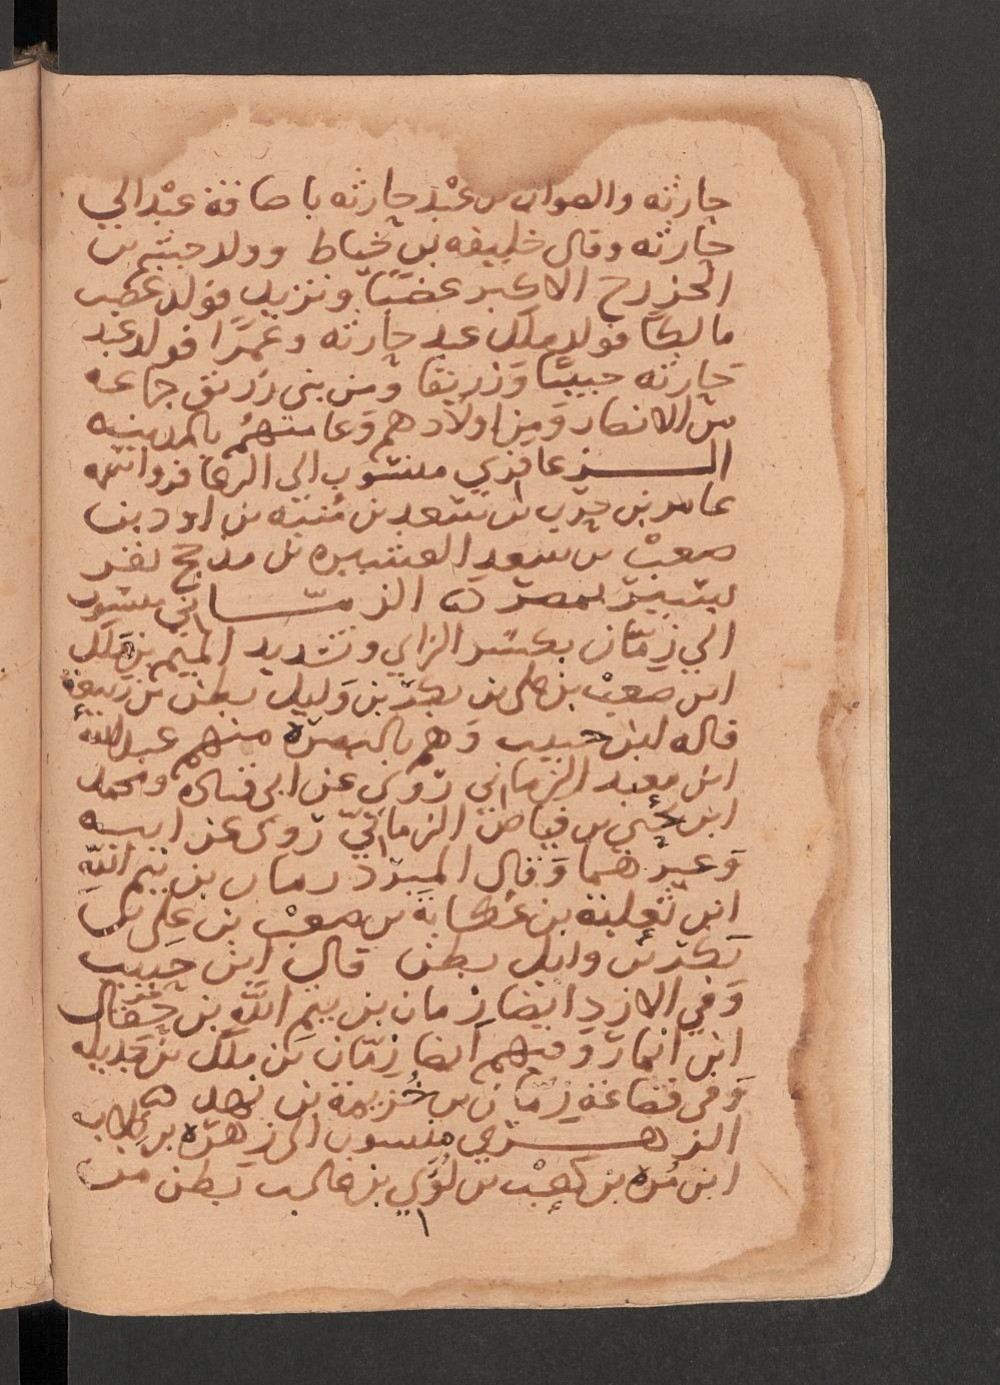 حارثه والصواب بن عبْد حارثه باضافة عبْد الي
حارثه وقال خليفه بن خياط وولد جشم بن
الخزرج الاكبر غضبًا وتزيد فولد غضب
مالكا فولد ملك عبد حارثه وعمرًا فولد عبد
حارثه حبيبًا وَزريقا ومن بني زريق جماعه
من الانصار وَمِن اولادهم وَعامتهمُ بالمدينه
الزعافري منسوب الى الزعافر واسمه
عامر بن حرب بن سَعد بن مُنبه بن اود بن
صعبْ بن سعد العشيره من مدحج نفر
يسير بمصر ه الزمّاني منسوب
الي زِمّان بكسر الزاي وتشديد الميم بن ملك
ابن صعبْ بن على بن بكر بن وَايل بطن من ربيعة
قاله ابن حبيب وَهم بالبصره منهم عبد الله
ابن معبد الزماني روى عن ابى قتاده ومحمد
ابن يحيي بن فياض الزمانيّ روى عن ابيه
وَغيرهما وَقال المبرّد زمان بن تيم اللهِ
ابن ثعلبة بن عُكابَة بن صعبْ بن عَلى بن
بَكر بن وايل بطن قال ابن حبيب
وَفي الازد ايضا زمان بن تيم اللهِ بن حقال
ابن انمار وفيهم ايضا زِمّان بن ملك بن جديله
وَفى قضاعَة زِمّان بن خُزيمة بن نهد ه
الزهري منسوب الى زهْره بن كلاب
ابن مُره بن كعبْ بن لُؤي بن غالب بطن من